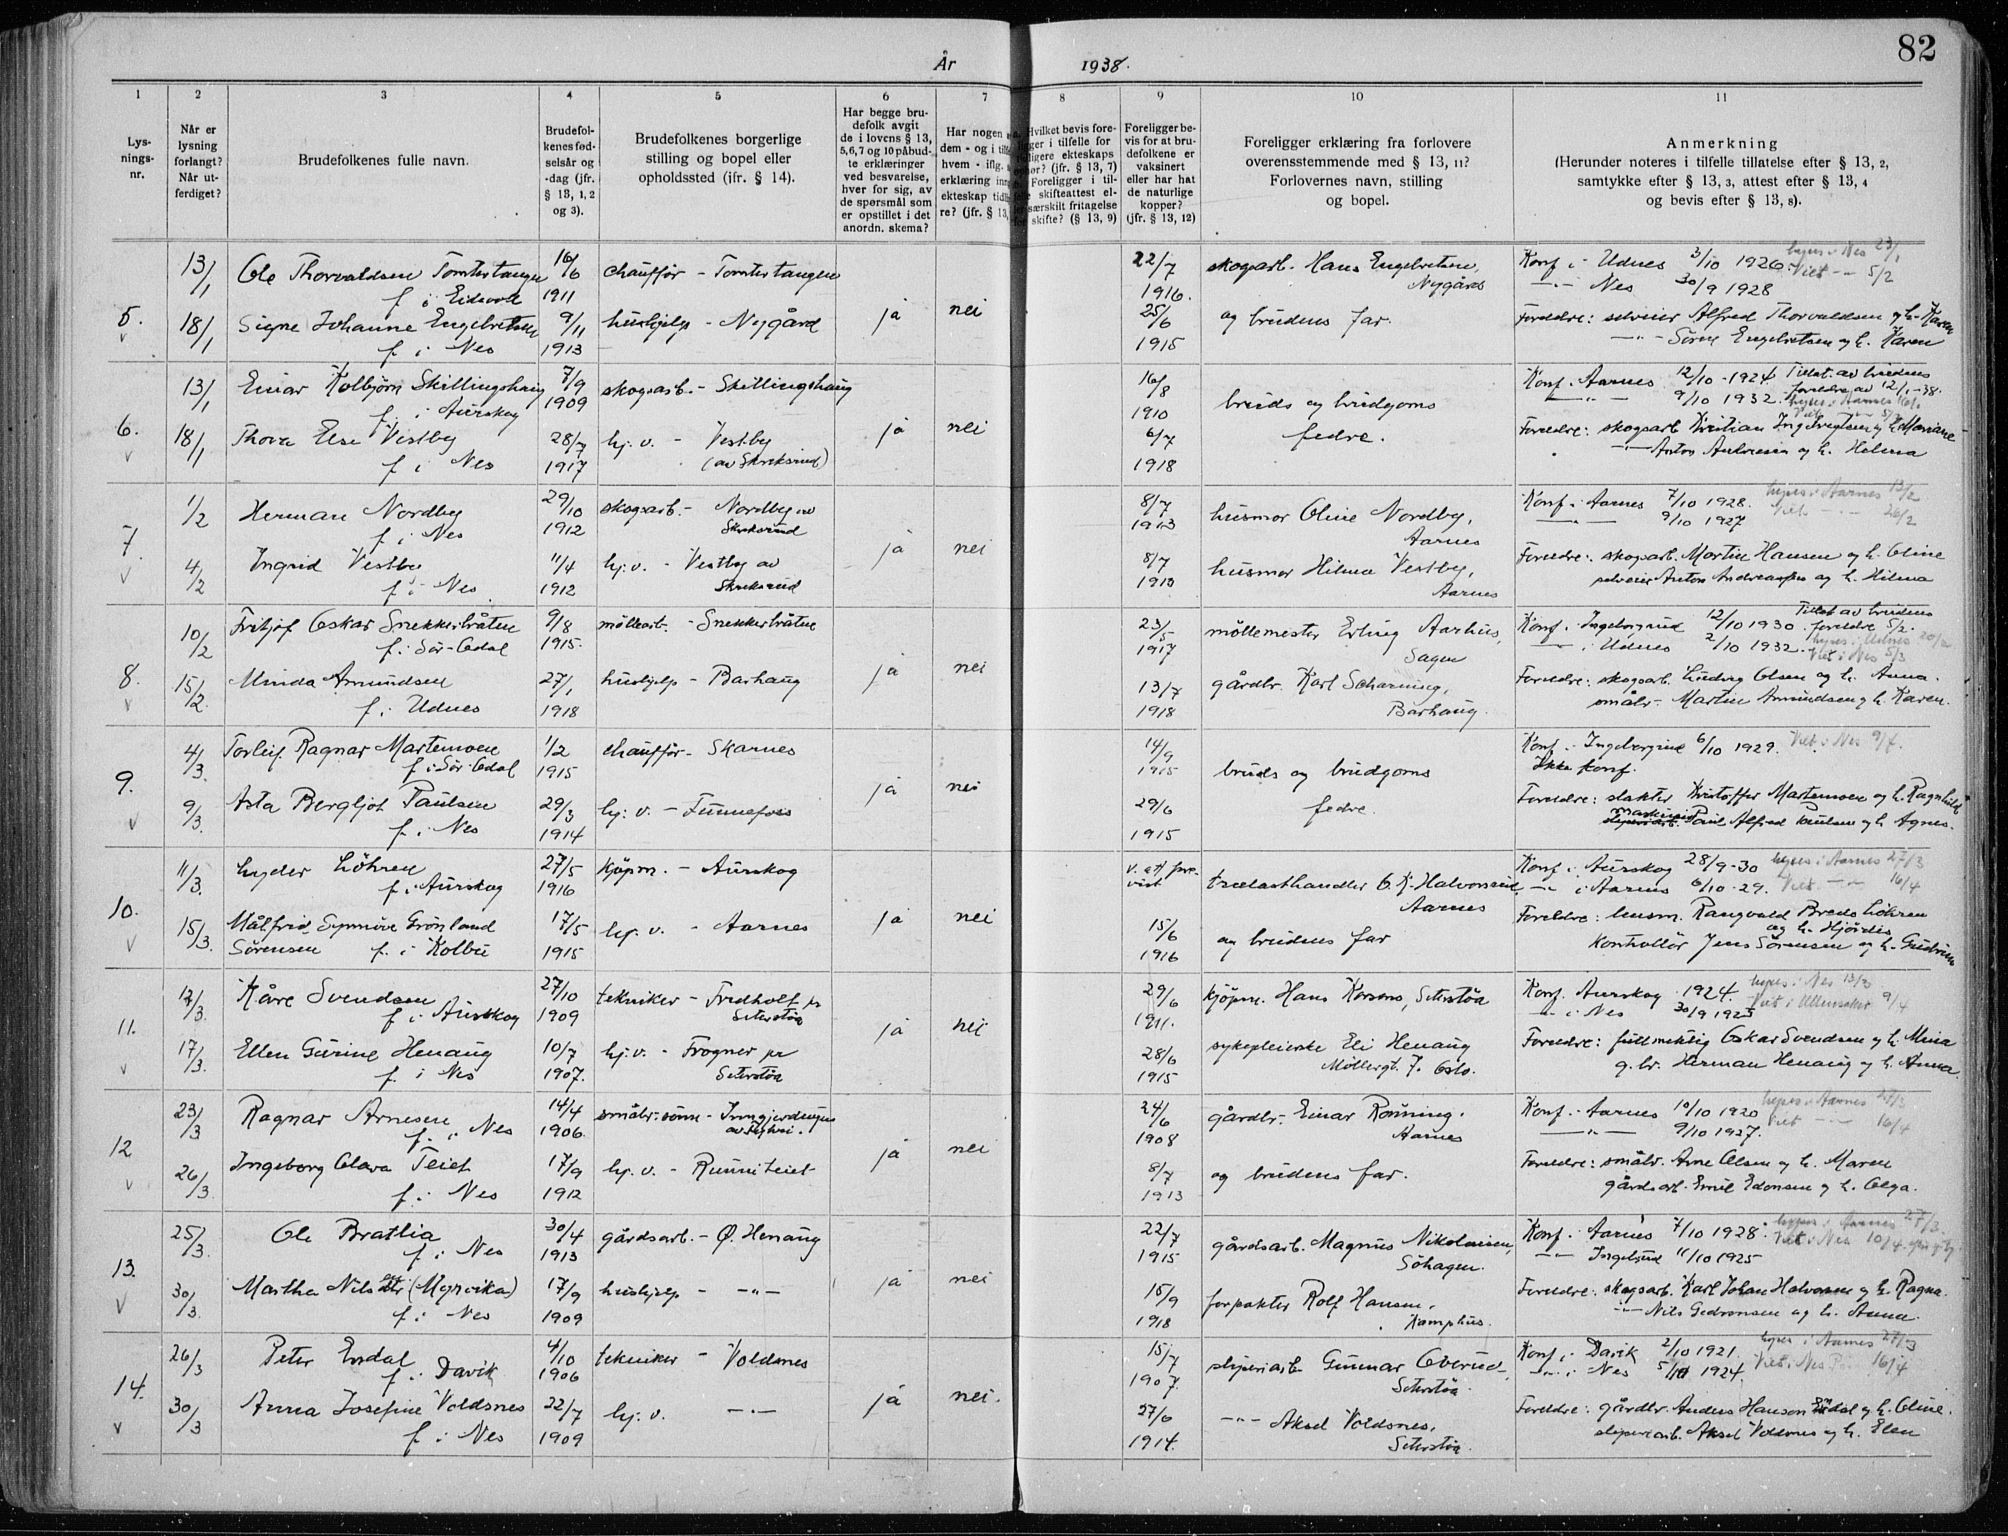 82
År 1938.
1 2 3 4 5 6 7 8 9 10 11
Lys-
nings-
nr.
Når er
lysning
forlangt?
Når ut-
ferdiget?
Brudefolkenes fulle navn.
Brudefol-
kenes fød-
selsår og
-dag (jfr.
§ 13, 1, 2
og 3).
Brudefolkenes borgerlige
stilling og bopel eller
opholdssted (jfr. § 14).
Har begge bru-
defolk avgit
de i lovens § 13,
5,6,7 og 10 påbud-
te erklæringer
ved besvarelse,
hver for sig, av
de spørsmål som
er opstillet i det
anordn. skema?
Har nogen
dem - og i
hvem - iflg.
erklæring
ekteskap
re? (jfr. § 13,
Hvilket bevis fore-
i tilfelle for
ekteskaps
(jfr. § 13, 7)
Foreligger i til-
skifteattest el-
særskilt fritagelse
skifte? (§ 13, 9)
Foreligger be-
vis for at bru-
defolkene er
vaksinert
eller har hat
de naturlige
kopper?
(jfr. § 13, 12)
Foreligger erklæring fra forlovere
overensstemmende med § 13, 11?
Forlovernes navn, stilling
og bopel.
Anmerkning
(Herunder noteres i tilfelle tillatelse efter § 13, 2,
samtykke efter § 13, 3, attest efter § 13, 4
og bevis efter § 13, 8).
5.
13/1 Ole Thorvaldsen Tomtertangen 16/6 chauffør - Tomtertangen 22/7 skogsarb. Hans Engebretsen, Konf. i Udnes 3/10 1926. lyses i Nes 23/1
f. i Eidsvoll 1911 1916. Nygård -"- Nes 30/9 1928 Viet -"- 5/2
18/1 Signe Johanne Engebretsen 9/11 hushjelp - Nygård ja nei 25/6 og brudens far. Foreldre: selveier Alfred Thorvaldsen og h. Karen
f. i Nes 1913 1915 -"- Engebretsen og h. Karen
6.
13/1 Einar Kolbjørn Skillingshaug 7/9 skogsarb. - Skillingshaug 16/8 Konf. Aarnes 12/10 - 1924 Tillat. av brudens
f. i Aurskog 1909 1910 bruds og brudgoms -"- 9/10 1932. foreldre av 12/1-38.
18/1 Thora Else Vestby 28/7 hj. v. - Vestby ja nei 6/7 fedre. Foreldre: skogsarb. Kristian Ingebregtsen og h. Mariane
f. i Nes 1917 (av Skreksrud) 1918 -"- Anton Andreasen og h. Helma
7.
1/2 Herman Nordby 29/10 skogsarb. - Nordby av 8/7 husmor Oline Nordby, Konf. i Aarnes 7/10 1928. lyses i Aarnes 13/2
f. i Nes 1912 Skreksrud 1913 Aarnes -"- 9/10 1927 Viet -"- 26/2
4/2 Ingrid Vestby 11/4 hj. v. - Vestby av ja nei 8/7 husmor Hilma Vestby, Foreldre: skogsarb. Martin Hansen og h. Oline
f. i Nes. 1912 Skreksrud 1913 Aarnes selveier Anton Andreassen og h. Hilma
8.
10/2 Fritjof Oskar Snekkerbråten 9/8 møllearb. - Snekkerbråten 23/5 møllemester Erling Aarhus, Konf. i Ingeborgrud 12/10 1930. Tillat av brudens
f. i Sør-Odal 1915. 1917 Sagen -"- i Udnes 2/10 1932. foreldre 5/2. lyses i Udnes 20/2 Viet i Nes 5/3
15/2. Minda Amundsen 27/1 hushjelp - Barhaug ja nei 13/7 gårdbr. Karl Scharning, Foreldre: skogsarb. Ludvig Olsen og h. Anna.
f. i Udnes 1918 1918 Barhaug. småbr. Martin Amundsen og h. Karen.
9.
4/3. Torleif Ragnar Martemoen 1/2 chauffør - Skarnes 14/9 Konf. i Ingeborgrud 6/10 1929. Viet i Nes 9/4.
f. i Sør-Odal 1915 1915 bruds og brudgoms Ikke konf.
9/3. Asta Bergljot Paulsen 29/3 hj. v. - Funnefoss ja nei 29/6 fedre. Foreldre: slakter Kristoffer Martemoen og h. Ragnhild
f. i Nes 1914 1915 maskinist Paul Alfred Paulsen og h. Agnes.
10.
11/3. Lyder Löhren 27/5 kjøpm. - Aurskog v. att. fore- Konf. i Aurskog 28/9-30 lyses i Aarnes 27/3
f. i Aurskog 1916 vist trelasthandler O. K. Halvorsrud -"- i Aarnes 6/10-29. Viet -"- 16/4
15/3. Målfrid Synnöve Grönland 17/5 hj. v. - Aarnes ja nei 15/6 Aarnes Foreldre: husm. Rangvald Brede Löhren
Sörensen f. i Kolbu 1915 1916 og brudens far og h. Hjördis
kontrollör Jens Sörensen og h. Gudrun
11.
12/3. Kåre Svendsen 27/10 tekniker - Fredholt pr 29/6 kjöpm. Hans Karsens, Seterstöa Konf. Aurskog 1924. lyses i Nes 13/3
f. i Aurskog 1909 Seterstöa 1911. -"- i Nes 30/9 1923 Viet i Ullensaker 9/4
17/3. Ellen Gurine Henaug 10/7 hj. v. - Frogner pr ja nei 28/6 sykepleierske Eli Henaug Foreldre: fullmektig Oskar Svendsen og h. Mina
f. i Nes 1907. Seterstöa 1915 Möllergt. 7. Oslo. g.br. Herman Henaug og h. Anna.
12
23/3 Ragnar Arnesen 14/4 småbr.sönn - 24/6 gårdbr. Einar Rönning. Konf. i Aarnes 10/10 1920 lyses i Aarnes 27/3
f. i Nes 1906. 1908 Aarnes -"- 9/10 1927. Viet -"- 16/4
26/3 Ingeborg Olava Teiet 17/9 hj. v. - Runniteiet ja nei 8/7 og brudens far. Foreldre: småbr. Arne Olsen og h. Maren
f. i Nes 1912 1913 gårdsarb. Emil Edonsen og h. Olga.
13.
25/3. Ole Bratlia 30/4 gårdsarb. - Ø. Henaug 22/7 gårdsarb. Magnus Nikolaisen, Konf. i Aarnes 7/10 1928. lyses i Aarnes 27/3
f. i Nes 1913 1915 Söhagen. -"- Ingelsrud 11/10 1925 Viet i Nes 10/4
30/3. Martha Nilsdtr (Myrvika) 17/9 hushjelp -"- ja nei 15/9 forpakter Rolf Hansen, Foreldre: skogsarb. Karl Johan Halvorsen og h. Ragna.
f. i Nes 1909 1918 Kamphus. -"- Nils Gedronsen og h. Anna.
14.
26/3 Peter Endal 4/10 tekniker - Voldsnes 15/7 sliperiarb. Gunnar Overud, Konf. i Davik 2/10 1921. lyses i Aarnes 27/3
f. i Davik 1906 1907. Seterstöa. -"- i Nes 5/10 1924. Viet i Nes 16/4
30/3 Anna Josefine Voldsnes 22/7 hj. v. -"- ja nei. 27/6 -"- Aksel Voldsnes, Foreldre: gårdbr. Anders Hanson Endal og h. Oline.
f. i Nes 1909 1914. Seterstöa. sliperiarb. Aksel Voldsnes og h. Elen